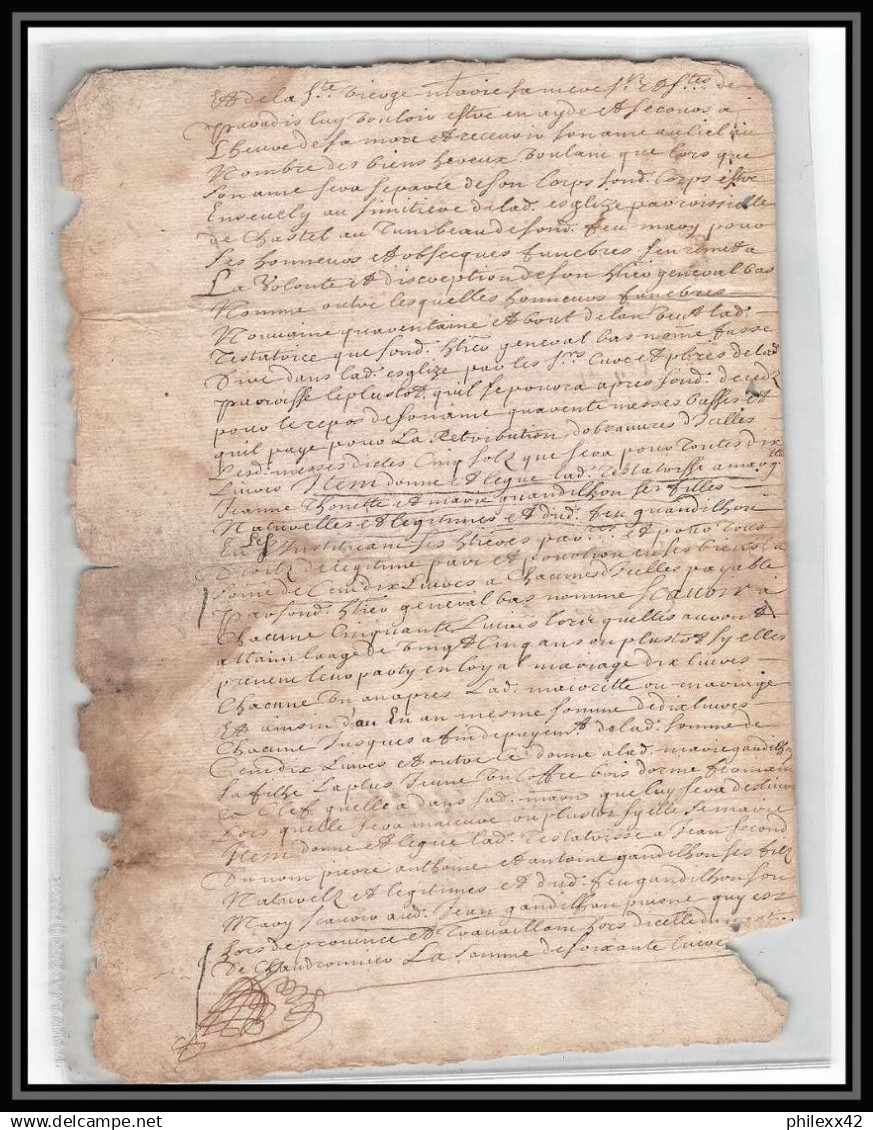 Et de la Ste vierge marie sa mere Sts et Stes de
paradis luy vouloir estre en ayde et secours a
Lheure de sa mort et recevoir son ame au ciel au
Nombre des biens heureux voulant que lors que
son ame sera separée de son corps sond. corps estre
Ensevely au simitiere de lad. esglize parroissielle
de Chastel au tumbeau de fond. feu mary pour
ses honneurs et obsecques funebres sen remet a
La volonte et discreption de son htier general bas
Nomme outre lesquelles honneurs funebres
Nouvaine quarentaine et bout de lan veut lad.
Testatrice que sond. htier general bas nomme fasse
Dire dans lad. esglize par les srs Curé et pbres de lad.
parroisse le plustot quil se pourra apres sond. decedz
pour le repos de son ame quarente messes basses et
quil paye pour La Retribution dobzeques dicelles
Lesd. messes dictes Cinq solz que sera pour toutes dix
Livres Item donne et legue lad. testatrisse a
Jeanne Thonette et marie Gandilhon ses filles
Naturelles et legitimes et dud. feu gandilhon
En les Instituant ses htieres par... et pour tous
Droitz de legitime part et portion en ses biens la
some de Cent dix Livres a Chacune dicelles payable
par sond. htier general bas nomme scavoir a
Chacune Cinquante Livres lorsquelles auront
attain laage de vingt Cinq ans ou plustot sy elles
prenent leur party en loyal mariage dix livres
Chacune un an apres Lad. maioritte ou mariage
Et ainsin dan En an mesme somme de dix livres
Chacune Jusques a fin de payemt de lad. somme de
Cent dix Livres et outre ce donne a lad. marie gandilhon
sa filhe La plus Jeune un coffre bois dorme fermant
a Clef quelle a dans sad. maison que luy sera destiné
Lors quelle sera maieure ou plustot sy elle se marie
Item donne et legue lad. testatrisse a Jean second
Du nom pierre anthoine et antoine gandilhon ses filz
Naturelz et legitimes et dud. feu gandilhon son
Mary scavoir aud. Jean gandilhon puisne quy est
hors de province et travaillant hors dicelle du mest...
De Chaudronnier La somme de soixante livres
philexx42